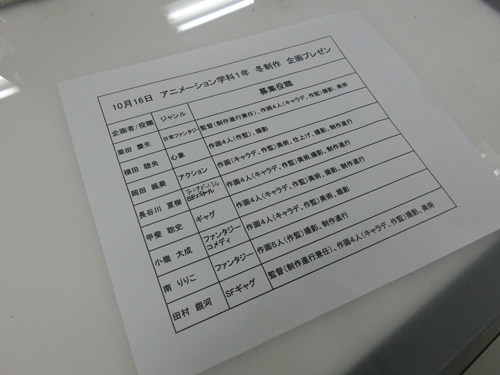 10月16日 アニメーション学科1年 冬制作 企画プレゼン
企画者/役職 ジャンル 募集役職
栗田 慶生 日常ファンタジー 監督(制作進行兼任)、作画4人(キャラデ、作監)撮影、美術
横田 陸央 心象 作画4人(作監)、撮影
岡田 颯要 アクション 作画(キャラデ、作監)美術、仕上げ、撮影、制作進行
長谷川 夏樹 作画4人(キャラデ、作監)美術撮影、制作進行
甲斐 聡史 ギャグ 作画4人(キャラデ、作監)美術、撮影、制作進行
小嶺 大成 ファンタジーコメディ 作画4人(キャラデ、作監)美術、撮影
南 りりこ ファンタジー 作画5人(作監)撮影、制作進行
田村 銀河 SFギャグ 監督(制作進行兼任)、作画4人(キャラデ、作監)撮影、美術